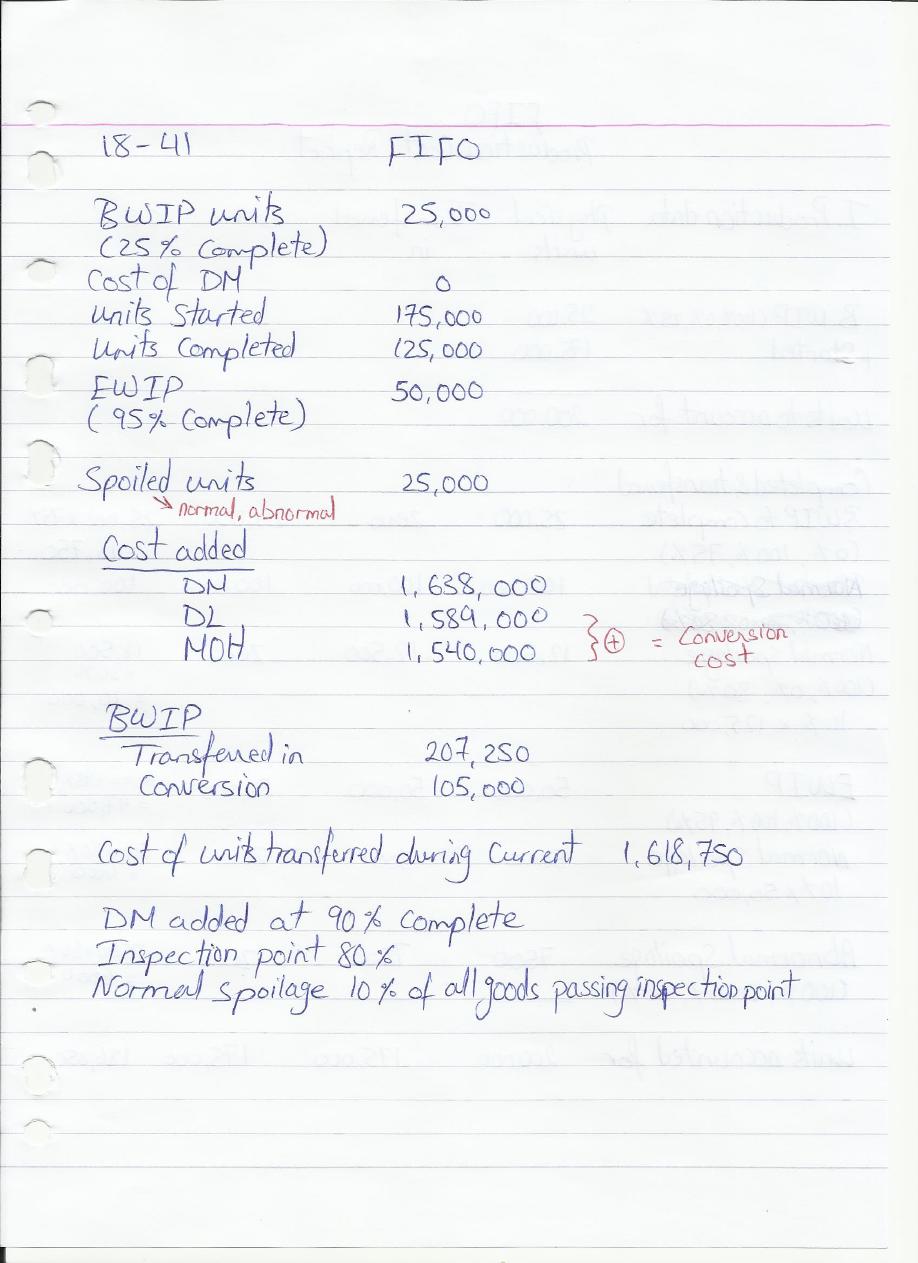 18-41 FIFO
BWIP units 25,000
(25% Complete)
Cost of DM 0
Units Started 175,000
Units Completed 125,000
EWIP 50,000
(95% Complete)
Spoiled units 25,000
→ normal, abnormal
Cost added
DM 1,638,000
DL 1,589,000
MOH 1,540,000
} ⊕ = Conversion
cost
BWIP
Transferred in 207,250
Conversion 105,000
Cost of units transferred during Current 1,618,750
DM added at 90% Complete
Inspection point 80%
Normal Spoilage 10% of all goods passing inspection point